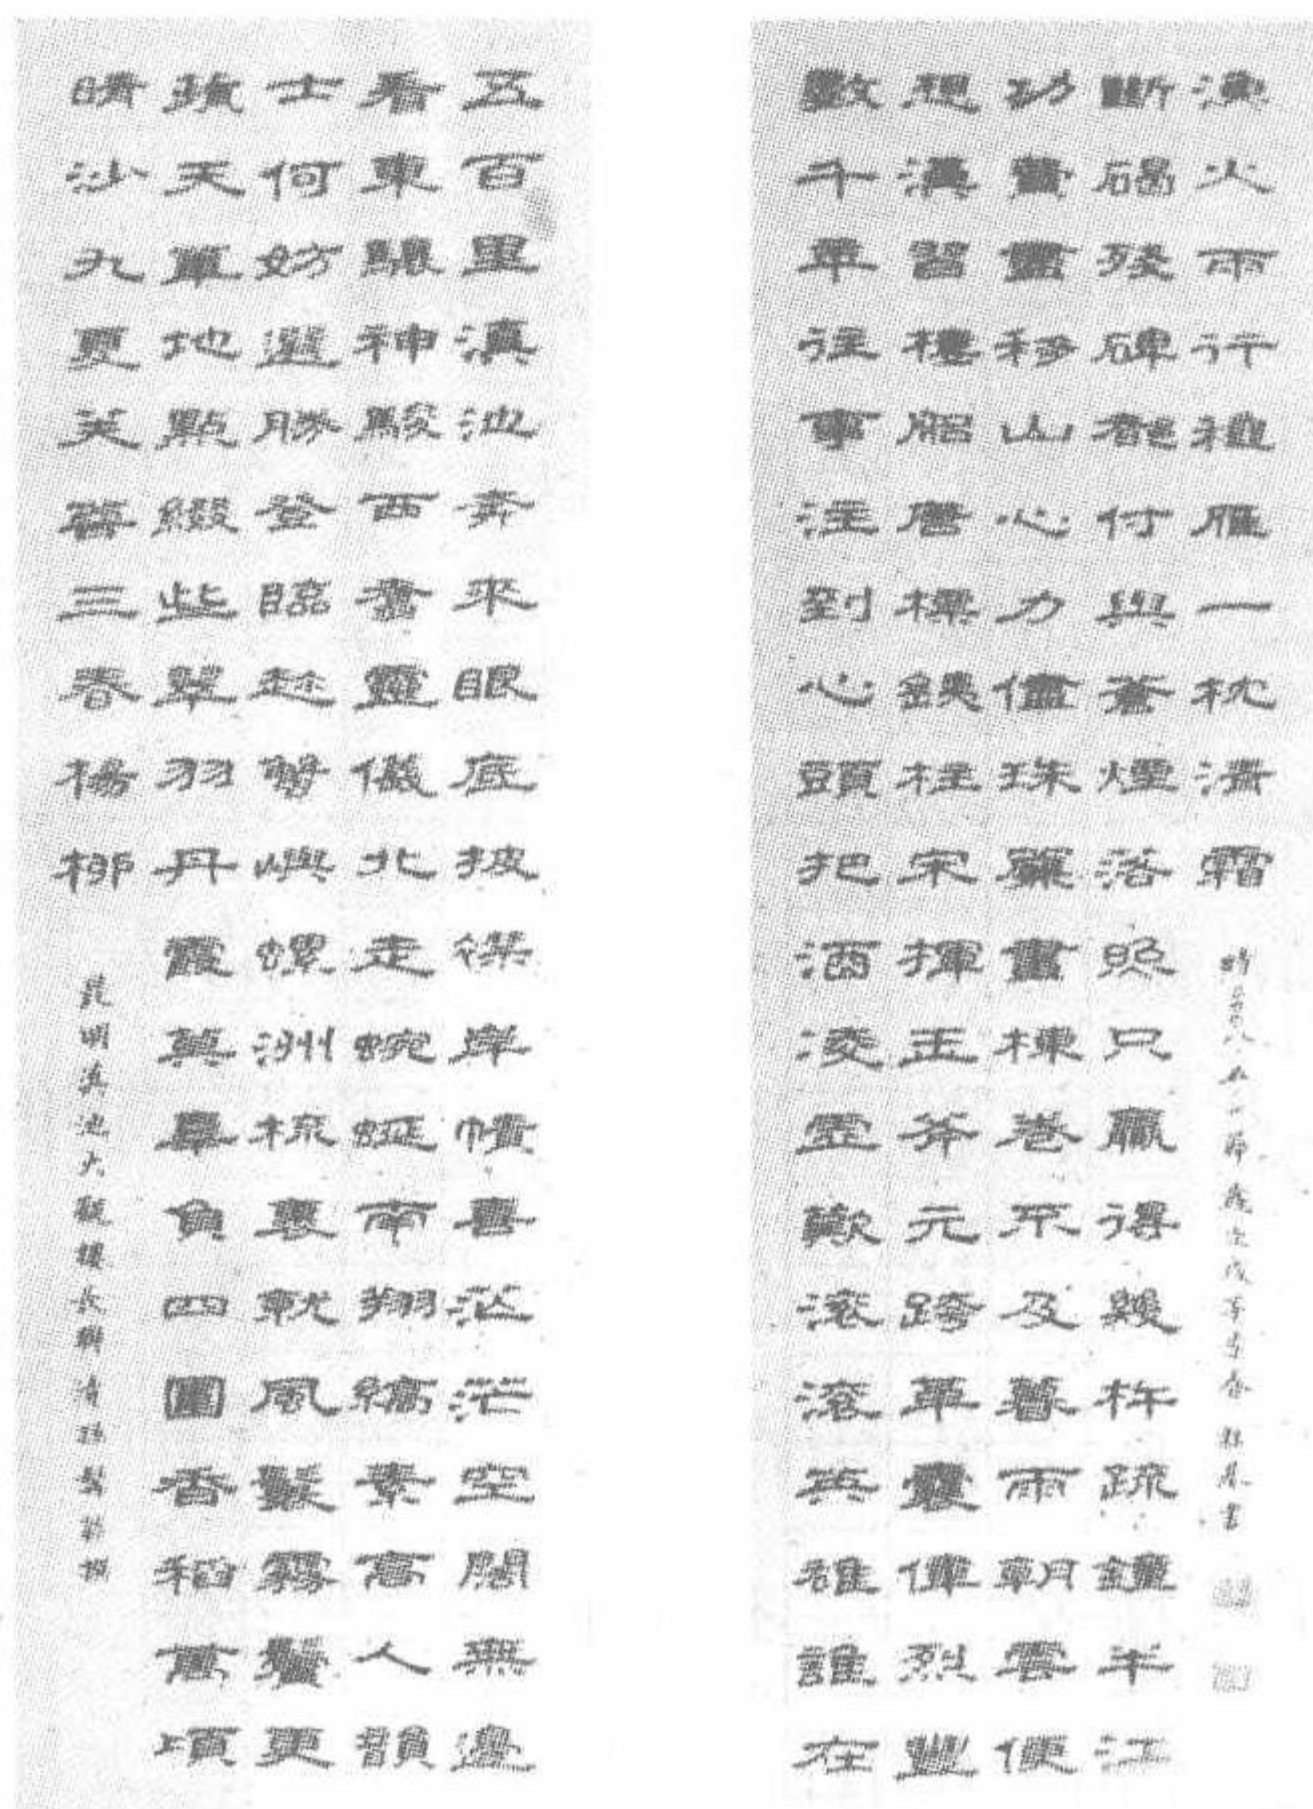 五百里滇池奔來眼底披襟岸幘喜茫茫空闊無邊
看東驤神駿西翥靈儀北走蜿蜒南翔縞素高人韻
士何妨選勝登臨趁蟹嶼螺洲梳裹就風鬟霧鬢更
蘋天葦地點綴些翠羽丹霞莫辜負四圍香稻萬頃
晴沙九夏芙蓉三春楊柳
昆明滇池大觀樓長聯清孫髯翁撰
數千年往事注到心頭把酒凌虛歎滾滾英雄誰在
想漢習樓船唐標鐵柱宋揮玉斧元跨革囊偉烈豐
功費盡移山心力儘珠簾畫棟卷不及暮雨朝雲便
斷碣殘碑都付與蒼煙落照只贏得幾杵疏鐘半江
漁火兩行秋雁一枕清霜